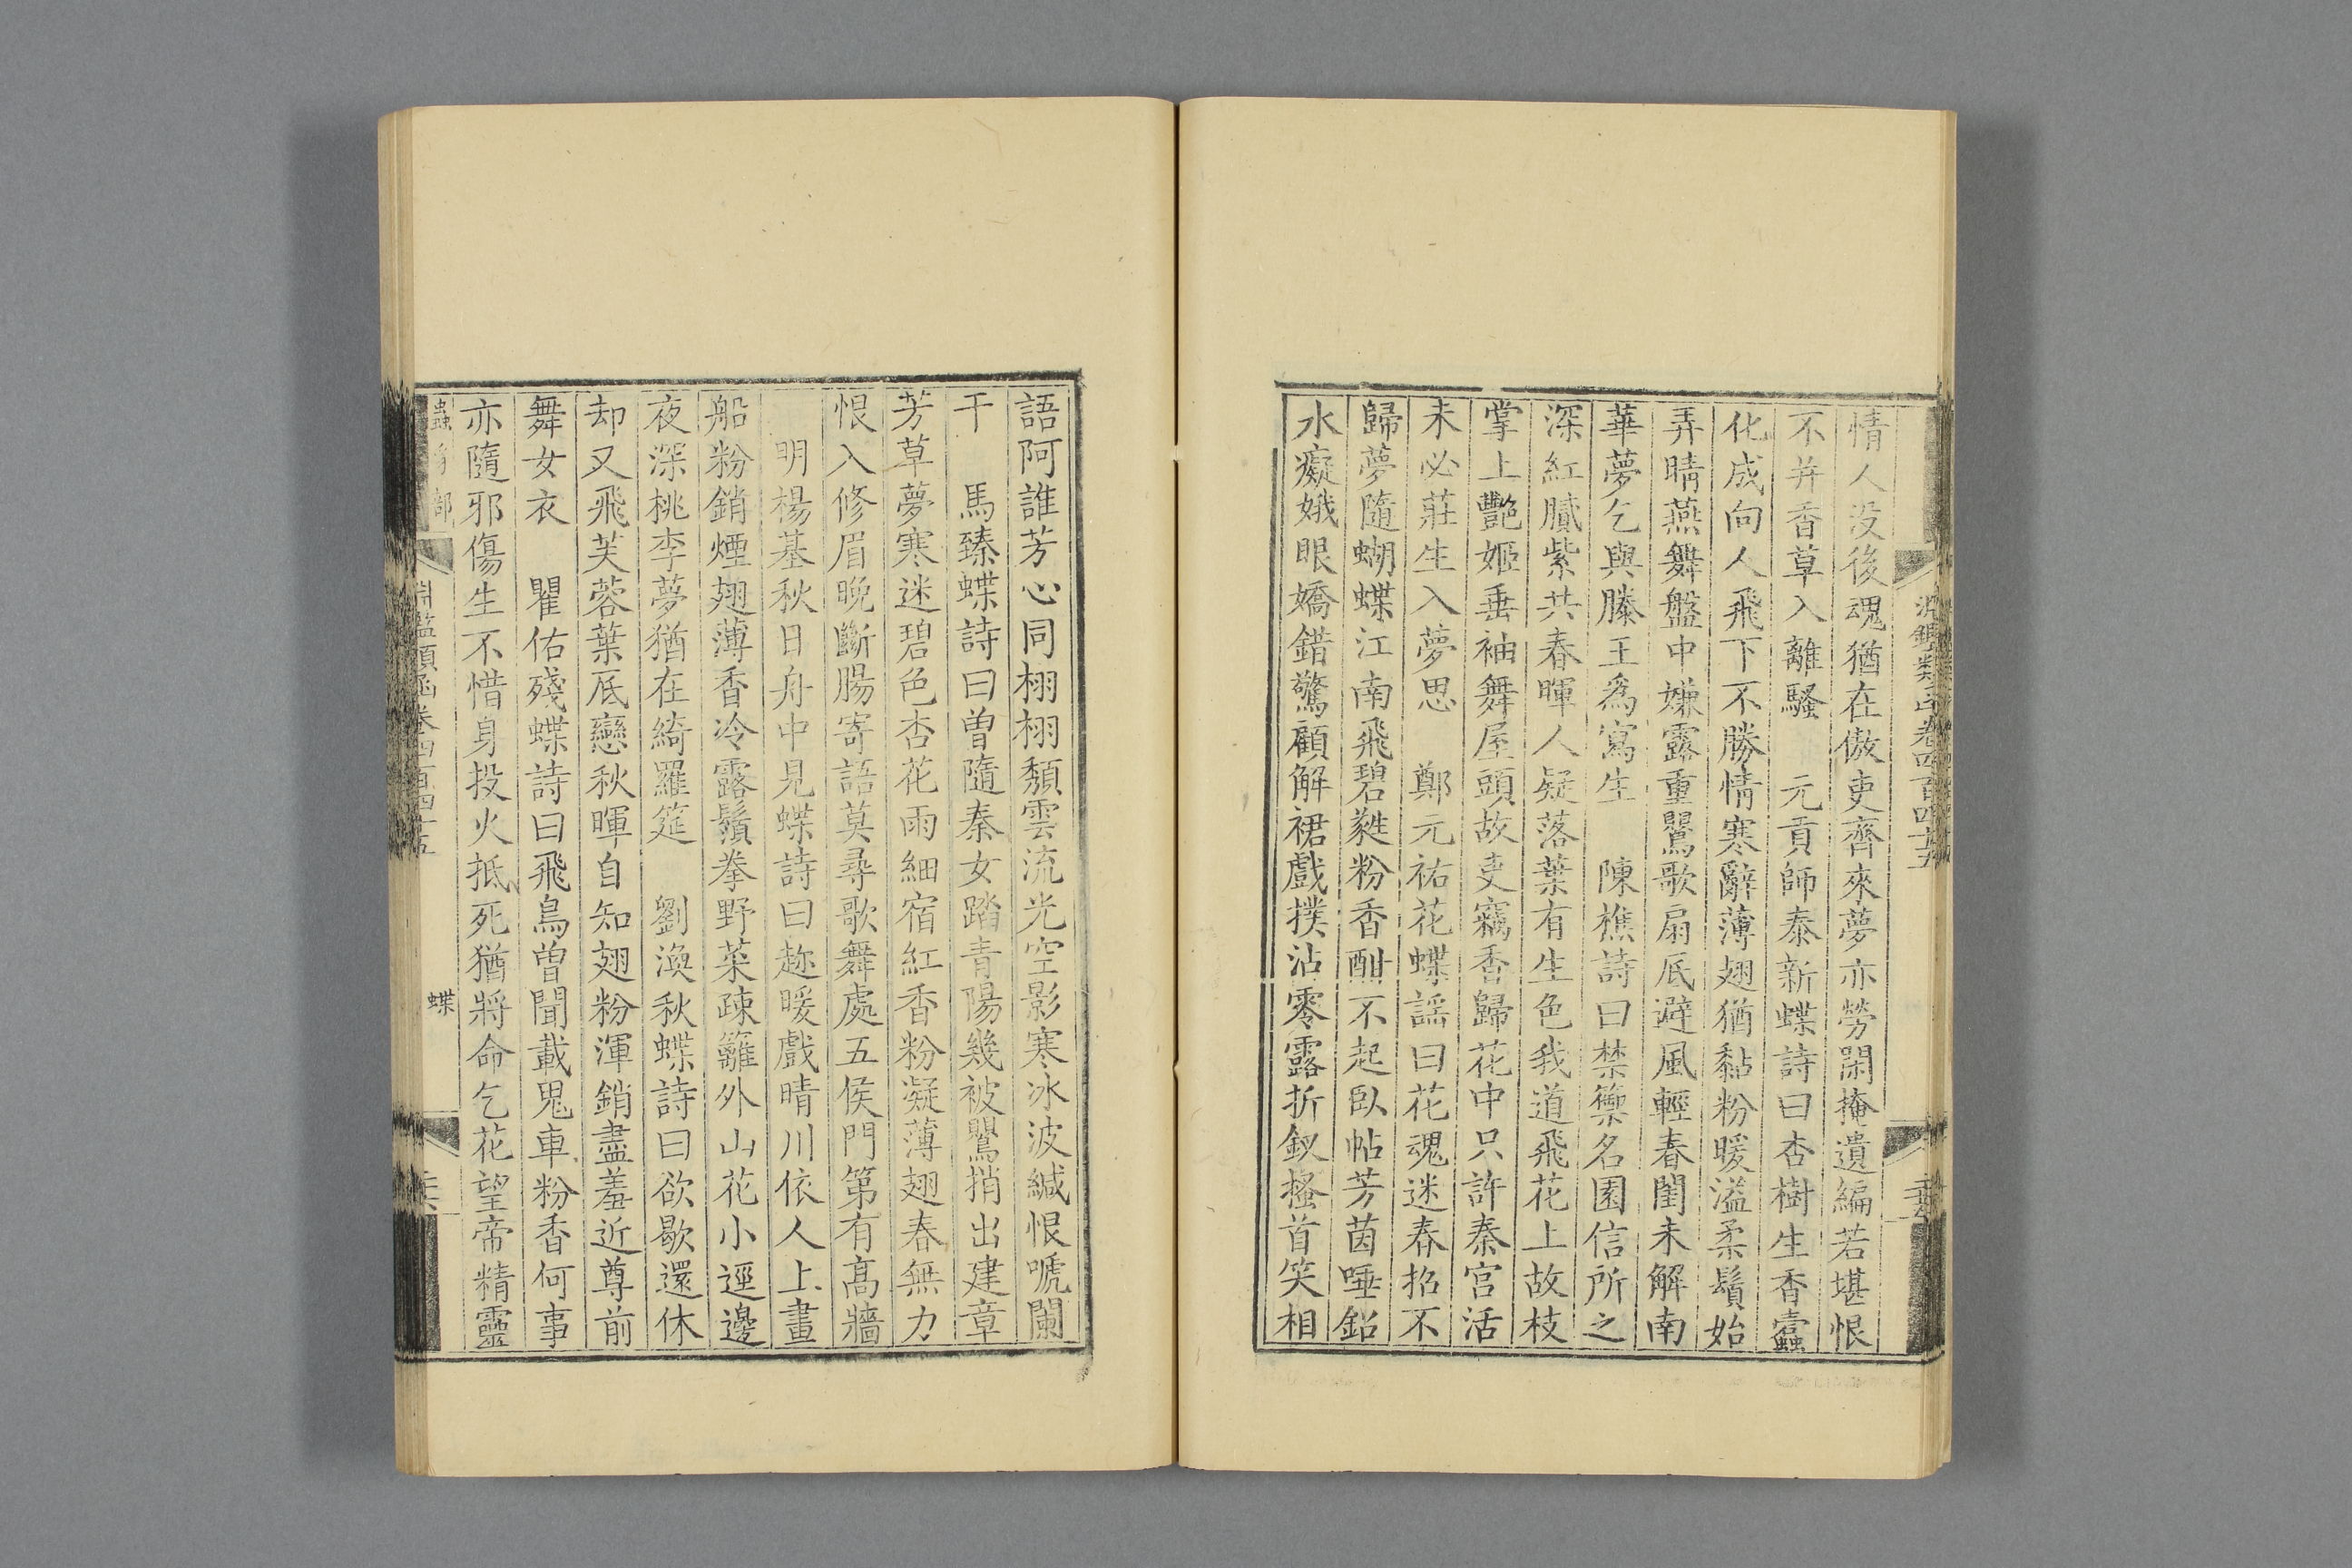 淵鑑類函卷四百四十五
情人没後魂猶在傲吏齊來夢亦勞閑掩遺編若堪恨
不并香草入離騷　元貢師泰新蝶詩曰杏樹生香蠹
化成向人飛下不勝情寒辭薄翅猶黏粉暖溢柔鬚始
弄晴燕舞盤中嫌露重鸎歌扇底避風輕春閨未解南
華夢乞與滕王爲寫生　陳樵詩曰禁籞名園信所之
深紅膩紫共春暉人疑落葉有生色我道飛花上故枝
掌上艷姬垂袖舞屋頭故吏竊香歸花中只許秦宫活
未必莊生入夢思　鄭元祐花蝶謡曰花魂迷春招不
歸夢隨蝴蝶江南飛碧蕤粉香酣不起臥帖芳茵唾鉛
水癡娥眼嬌錯驚顧解裙戲撲沾零露折釵搔首笑相
語阿誰芳心同栩栩頽雲流光空影寒冰波緘恨唬闌
干　馬臻蝶詩曰曾隨秦女踏青陽幾被鸎捎出建章
芳草夢寒迷碧色杏花雨細宿紅香粉凝薄翅春無力
恨入修眉晚斷腸寄語莫尋歌舞處五侯門第有高牆
明楊基秋日舟中見蝶詩曰趂暖戲晴川依人上畫
船粉銷煙翅薄香冷露鬚拳野菜疎籬外山花小逕邊
夜深桃李夢猶在綺羅筵　劉渙秋蝶詩曰欲歇還休
却又飛芙蓉葉底戀秋暉自知翅粉渾銷盡羞近尊前
舞女衣　瞿佑殘蝶詩曰飛鳥曾聞載鬼車粉香何事
亦隨邪傷生不惜身投火抵死猶將命乞花望帝精靈
淵鑑類函卷四百四十五　蝶